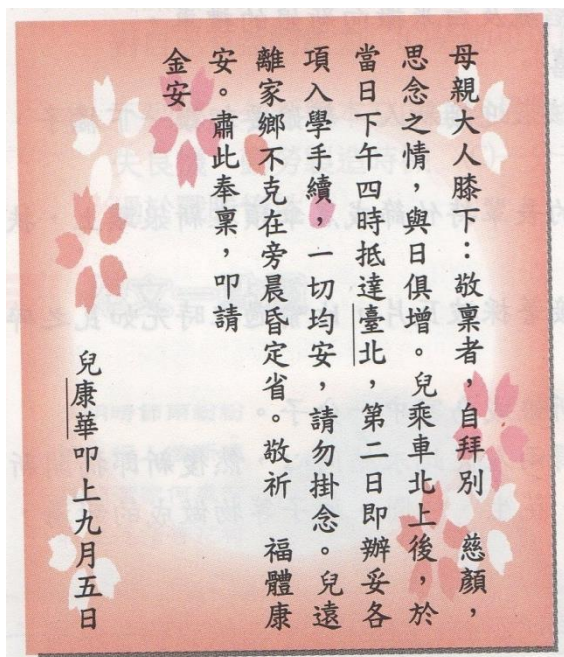 母親大人膝下：敬稟者，自拜別　慈顏，
思念之情，與日俱增。兒乘車北上後，於
當日下午四時抵達臺北，第二日即辦妥各
項入學手續，一切均安，請勿掛念。兒遠
離家鄉不克在旁晨昏定省。敬祈　福體康
安。肅此奉稟，叩請
金安
兒康華叩上九月五日